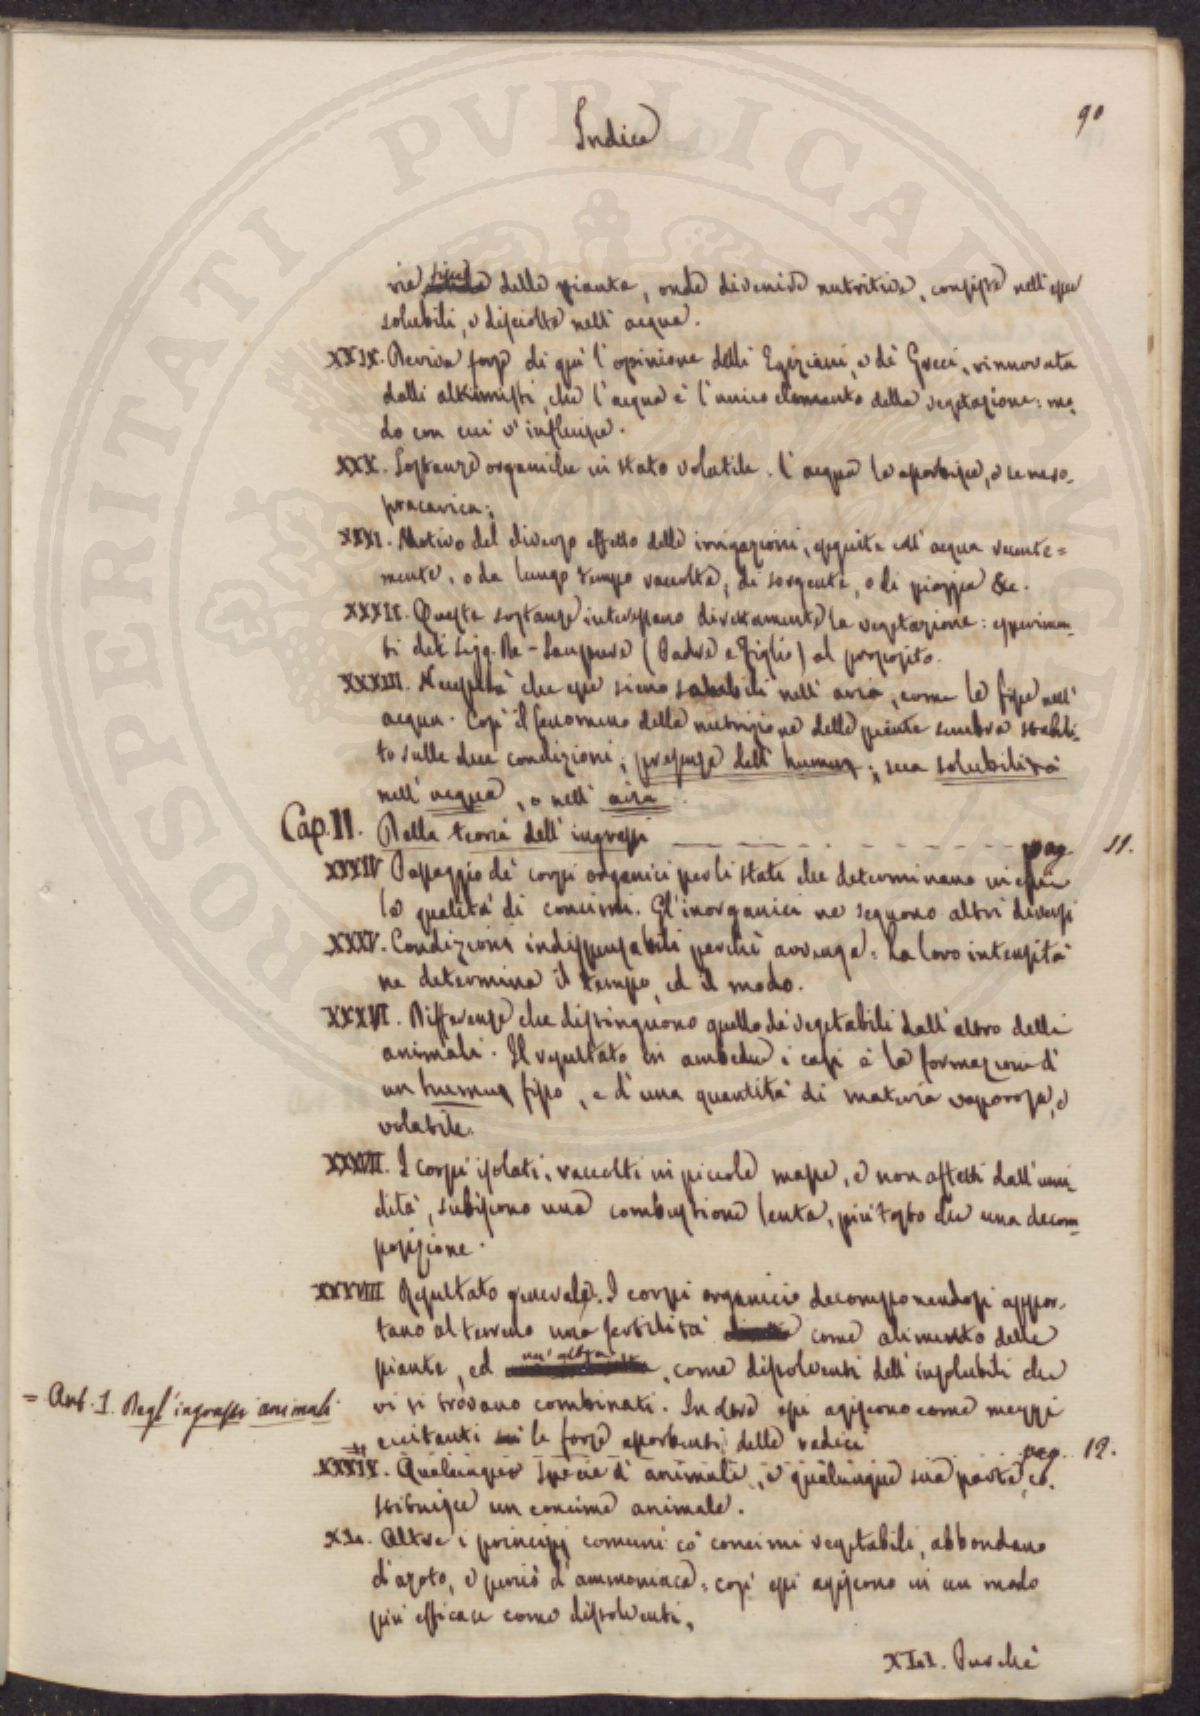 90
Indice
rie fisse delle piante, onde divenire nutritive, consiste nell'esser
solubili, e disciolte nell' acqua.
XXIX. Deriva forse di quì l'opinione delli Egiziani, e dè Greci, rinnovata
dalli alkimisti, che l'acqua è l'unico elemento della vegetazione: mo-
do con cui v'influisce.
XXX. Sostanze organiche in stato volatile. L'acqua le assorbisce, e se ne so-
pracarica.
XXXI. Motivo del diverso effetto delle irrigazioni, eseguite coll' acqua recente=
mente, o da lungo tempo raccolta, di sorgente, o di pioggia &c.
XXXII. Queste sostanze interessano direttamente la vegetazione: esperimen-
ti del Sigg. De-Saussure (Padre e Figlio) al proposito.
XXXIII. Necessità che esse sieno solubili nell' aria, come le fisse nell'
acqua. Così il fenomeno della nutrizione delle piante sembra stabili-
to sulle due condizioni; presenza dell' humus; sua solubilità
nell' acqua, o nell' aria.
Cap. II. Della teoria dell' ingrassi pag. 11.
XXXIV Passaggio dè corpi organici per li stati che determinano in essi
le qualità di concimi. Gl'inorganici ne seguono altri diversi
XXXV. Condizioni indispensabili perchè avvenga: La loro intensità
ne determina il tempo, ed il modo.
XXXVI. Differenze che distinguono quello dè vegetabili dall' altro delli
animali. Il resultato in ambedue i casi è la formazione d'
un humus fisso, e d'una quantità di materia vaporosa, e
volatile.
XXXVII. I corpi isolati, raccolti in piccole masse, e non affetti dall'umi-
dità, subiscono una combustione lenta, più tosto che una decom-
posizione.
XXXVIII Resultato generale. I corpi organici decomponendosi appor-
tano al terreno una fertilità come alimento delle
piante, ed un' altra, come dissolventi dell' insolubili che
vi si trovano combinati. Inoltre essi agiscono come mezzi
eccitanti le forze assorbenti delle radici
= Art. 1. Degl' ingrassi animali. pag. 12.
XXXIX. Qualunque specie d'animale, e qualunque sua parte, co-
stituisce un concime animale.
XL. Oltre i principj comuni cò concimi vegetabili, abbondano
d'azoto, e perciò d'ammoniaca: così essi agiscono in un modo
più efficace come dissolventi.
XLI. Perchè